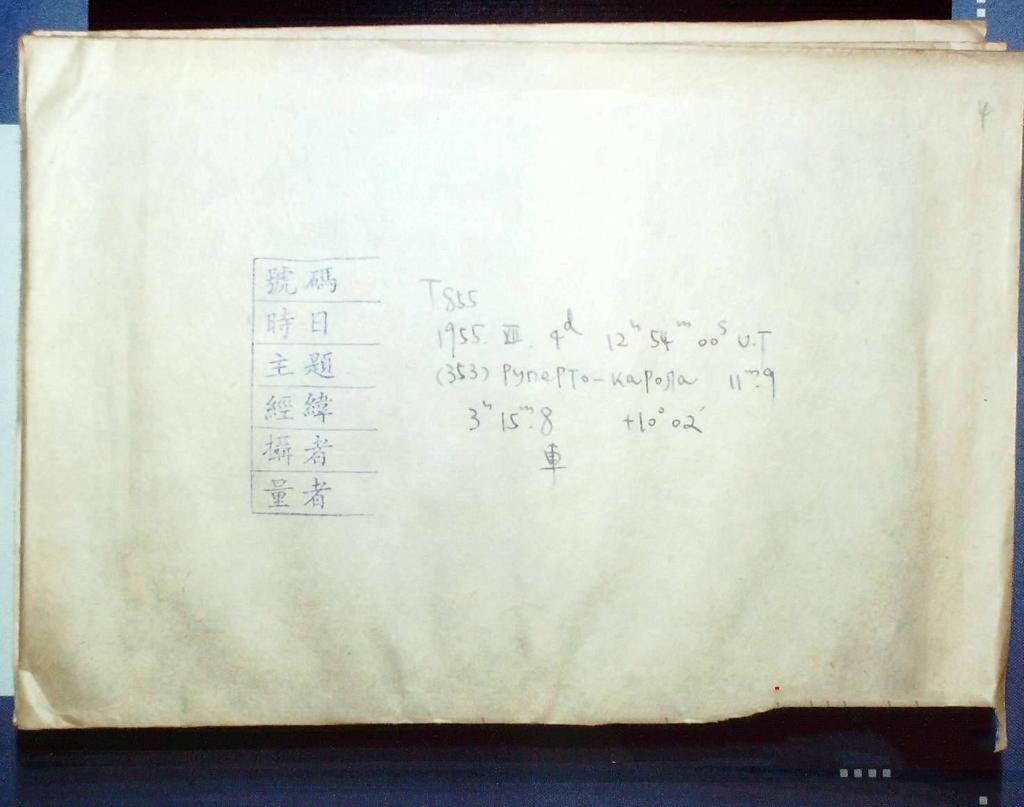 4
號碼 T855
時日 1955. XII. 4ᵈ 12ʰ 54ᵐ 00ˢ U.T
主題 (353) Руперто-Карола 11ᵐ.9
經緯 3ʰ 15ᵐ.8 +10° 02′
攝者 車
量者